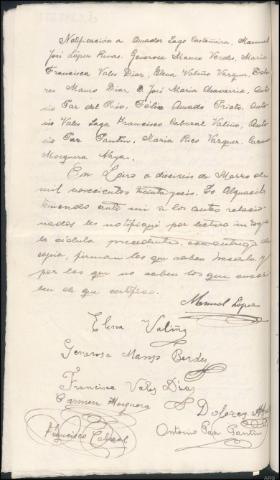 Notificación a Amador Lago Castiñeira, Manuel
José López Rivas, Generosa Manso Verdes, María
Francisca Vales Diaz, Elena Valiño Vazquez, Dolo
res Manso Diaz, D. José María Chavarria, Anto
nio Par del Rio, Felisa Amado Prieto, Anto
nio Vales Lago, Francisco Cabural Valiño, Anto
nio Par Pantin, María Rico Vazquez, Carmen
Mosquera Naya.
En Loiro a dieciseis de Marzo de
mil novecientos treinta y seis. Yo Alguacil
teniendo ante mi a los antes relacio
nados les notifiqué por lectura integra
la cédula precedente, con entrega de
copia, firman los que saben hacerlo y
por los que no saben los que
de que certifico.
Manuel Lopez
Elena Valiño
Generosa Manso Berdes
Francisca Vales Dias
Carmen Mosquera
Dolores
Francisco Cabural
Antonio Par Pantin